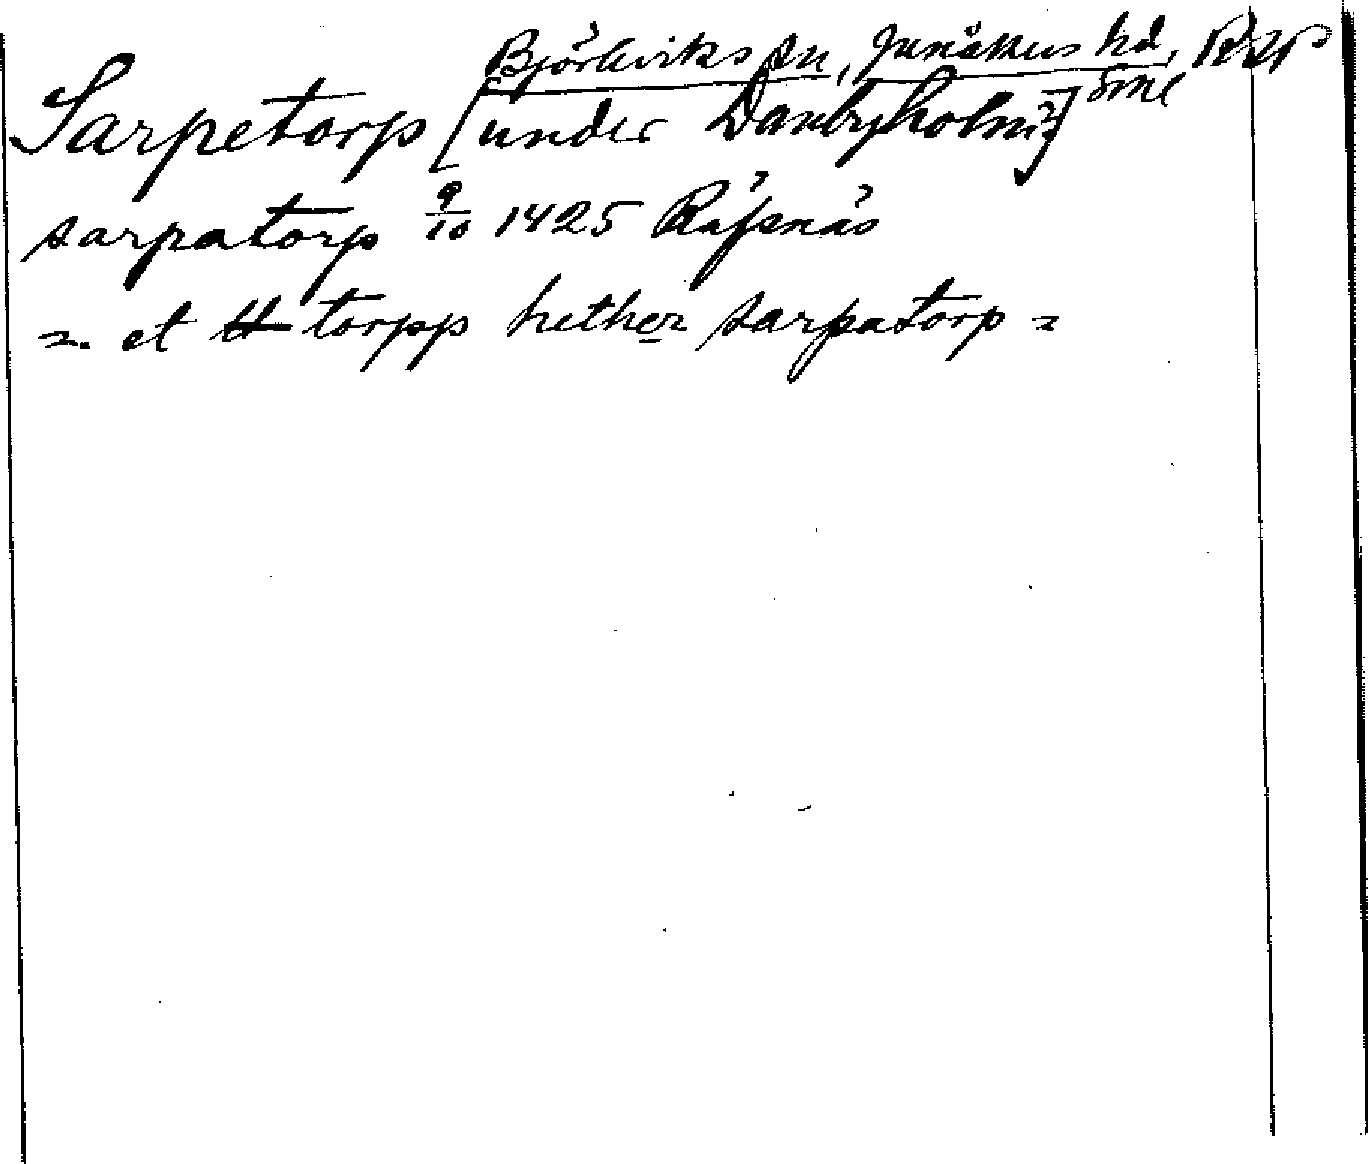 Björkviks sn, Jönåkers hd,
Sarpetorp [under Danbyholm?] Sml
sarpatorp 9/10 1425 Räfsnäs
=. et torpp hether sarpatorp =